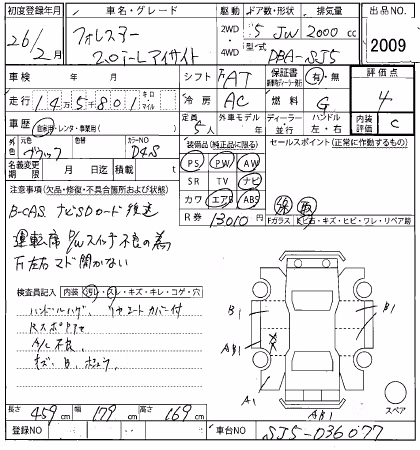 初度登録年月 車名・グレード 駆動 ドア数・形状 排気量 出品NO
26/2月 フォレスター 2WD 5 JW 2000 cc
2.0i-Lアイサイト 4WD 型式 DBA-SJ5 2009
車検 年 月 シフト FAT 保証書 有・無 評価点
走行 145801 キロ マイル 冷房 AC 燃料 G 4
車歴 自家用・レンタ・事業用( ) 定員 5人 外車モデル 年 ディーラー・並行 ハンドル 左・右 内装評価 C
外色 ブラック 色替 カラーNO D4S 装備品(純正品に限る) セールスポイント(正常に作動するもの)
名義変更期限 月 日 積載 t PS PW AW
注意事項(欠品・修復・不具合箇所および状態) SR TV ナビ
B-CAS ナビSDロード 後送 カワ エアB ABS
運転席 P/Wスイッチ不良の為 R券 13010 円
下左右マド開かない Fガラス
検査員記入 内装 汚レ・スレ・キズ・キレ・コゲ・穴
ハンドルハゲ
A/C不良
B1 A1
AB1 B1
A1 AB1 スペア
長さ 459cm 幅 179cm 高さ 169cm
登録NO 車台NO SJ5-036077